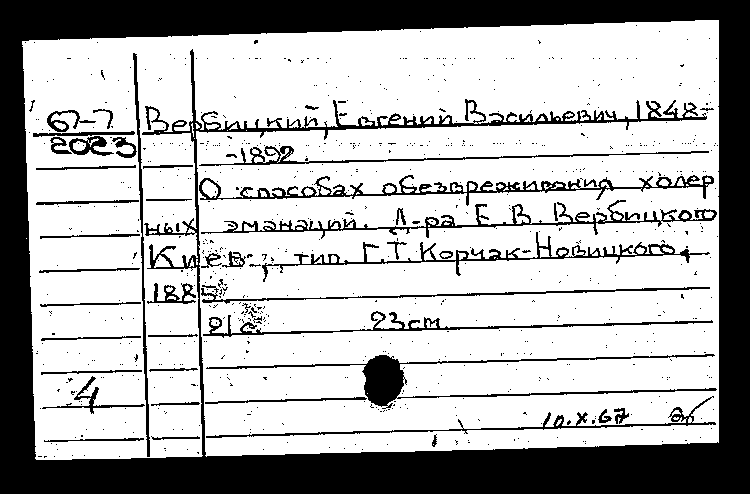 67-7 Вербицкий, Евгений Васильевич, 1848-
2023 -1892.
О способах обезвреживания холер
ных эманаций. Д-ра Е.В. Вербицкого
Киев, тип. Г.Т. Корчак-Новицкого,
1885
21 с. 23 cm
4
10.X.67